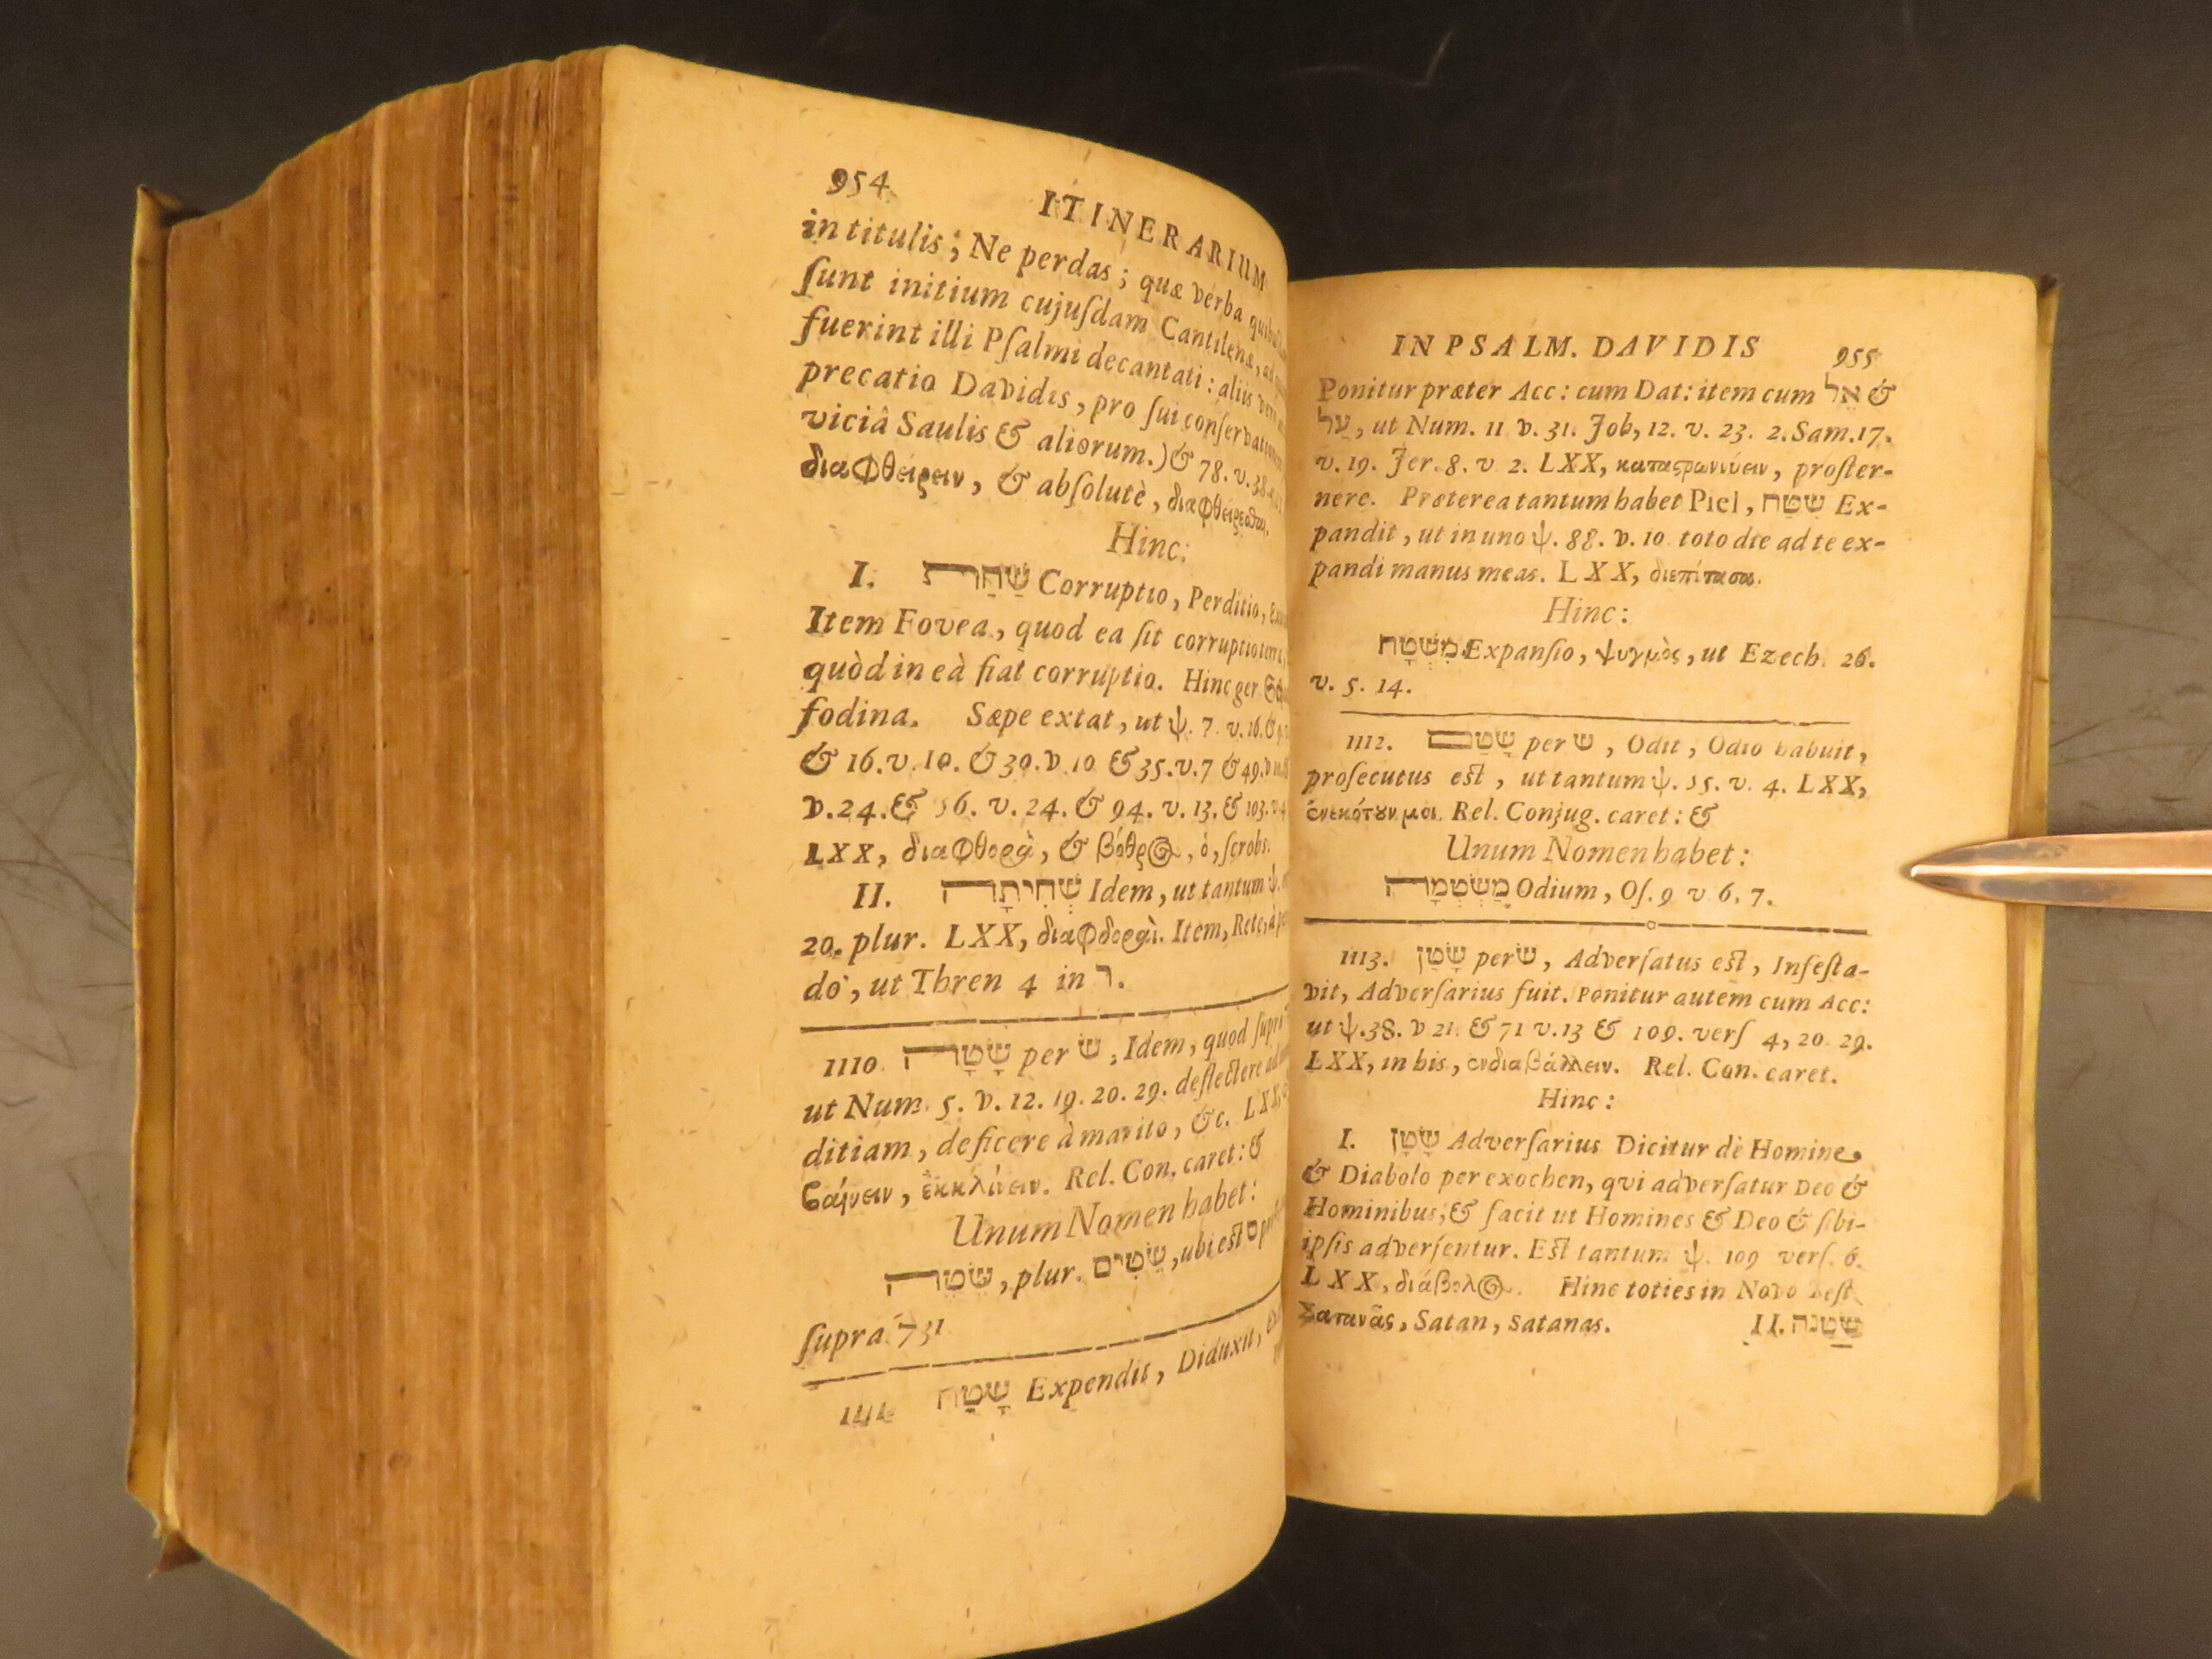 954 ITINERARIUM
in titulis; Ne perdas; quæ verba
ſunt initium cujuſdam Cantilenæ,
fuerint illi Pſalmi decantati: aliis
precatio Davidis, pro ſui
viciâ Saulis & aliorum.) & 78. v. 38.
διαφθείρειν, & abſolutè, διαφθείρεσθαι.
Hinc:
I. שַׁחַת Corruptio, Perditio,
Item Fovea, quod ea ſit corruptio
quòd in eâ fiat corruptio. Hinc ger
fodina. Sæpe extat, ut ψ. 7. v. 16. &
& 16. v. 10. & 30. v. 10 & 35. v. 7 & 49. v
v. 24. & 56. v. 24. & 94. v. 13. & 103. v. 4
LXX, διαφθορὰ, & βόθρος, ὁ, ſcrobs.
II. שְׁחִיתָה Idem, ut tantum ψ.
20. plur. LXX, διαφθοραὶ. Item, Rete,
do, ut Thren 4 in ר.
1110. שָׂטָה per שׂ, Idem, quod ſupra
ut Num. 5. v. 12. 19. 20. 29. deflectere
ditiam, deficere à marito, &c. LXX,
βαίνειν, ἐκκλίνειν. Rel. Con. caret: &
Unum Nomen habet:
שֹׂטֵה, plur. שֹׂטִים, ubi est ס
ſupra 731
1111 שָׁטַח Expendit, Diduxit,
IN PSALM. DAVIDIS 955
Ponitur præter Acc: cum Dat: item cum אֶל &
עַל, ut Num. 11 v. 31. Job, 12. v. 23. 2. Sam. 17.
v. 19. Jer. 8. v 2. LXX, καταϛρωννύειν, proſter-
nere. Præterea tantum habet Piel, שִׁטַּח Ex-
pandit, ut in uno ψ. 88. v. 10 toto die ad te ex-
pandi manus meas. LXX, διεπέτασα.
Hinc:
מִשְׁטָח Expanſio, ψυγμὸς, ut Ezech. 26.
v. 5. 14.
1112. שָׂטַם per ש, Odit, Odio habuit,
proſecutus eſt, ut tantum ψ. 55. v. 4. LXX,
ἐνεκότουν μοι. Rel. Conjug. caret: &
Unum Nomen habet:
מַשְׂטֵמָה Odium, Oſ. 9 v 6. 7.
1113. שָׂטַן per שׂ, Adverſatus eſt, Infeſta-
vit, Adverſarius fuit. Ponitur autem cum Acc:
ut ψ. 38. v 21. & 71 v. 13 & 109. verſ 4, 20 29.
LXX, in his, ἐνδιαβάλλειν. Rel. Con. caret.
Hinc:
I. שָׂטָן Adverſarius Dicitur de Homine
& Diabolo per exochen, qui adverſatur Deo &
Hominibus; & facit ut Homines & Deo & ſibi-
ipſis adverſentur. Eſt tantum ψ. 109 verſ. 6.
LXX, διάβολος. Hinc toties in Novo Teſt
Σατανᾶς, Satan, Satanas. II. שִׂטְנָה